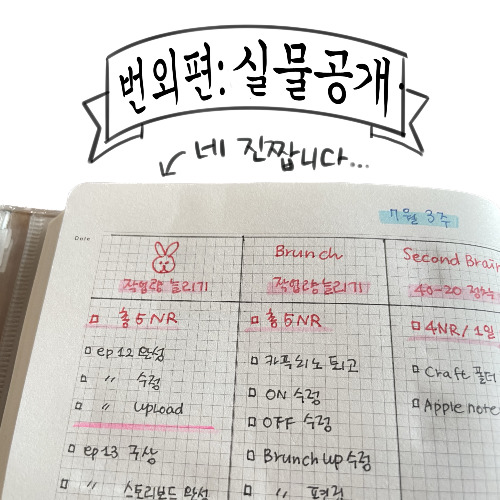 번외편: 실물공개
네 진짭니다...
7월 3주
Date
작업량 늘리기
총 5NR
ep 12 완성
〃 수정
〃 upload
ep 13 구상
〃 스토리보드 완성
Brunch
작업량 늘리기
총 5NR
카푸치노 퇴고
ON 수정
OFF 수정
Brunch up 수정
〃 편집
Second Brain
40-20
4NR / 1일
Craft 폴더
Apple note